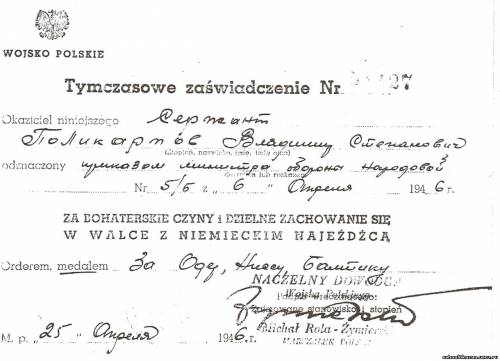 WOJSKO POLSKIE
Tymczasowe zaświadczenie Nr 27
Okaziciel niniejszego Сержант
Поликарпов Владимир Степанович
(stopień, nazwisko, imię, imię ojca)
odznaczony приказом министра обороны народовой
Nr 5/5 z „ 6 " Апреля 194 6 г.
ZA BOHATERSKIE CZYNY i DZIELNE ZACHOWANIE SIĘ
W WALCE Z NIEMIECKIM NAJEŹDŹCĄ
Orderem, medalem За Одр, Нису, Балтику
NACZELNY DOWÓDCA
Wojska Polskiego
stanowisko i stopień
Michał Rola-Żymierski
MARSZAŁEK
M. p. „ 25 " Апреля 194 6 г.